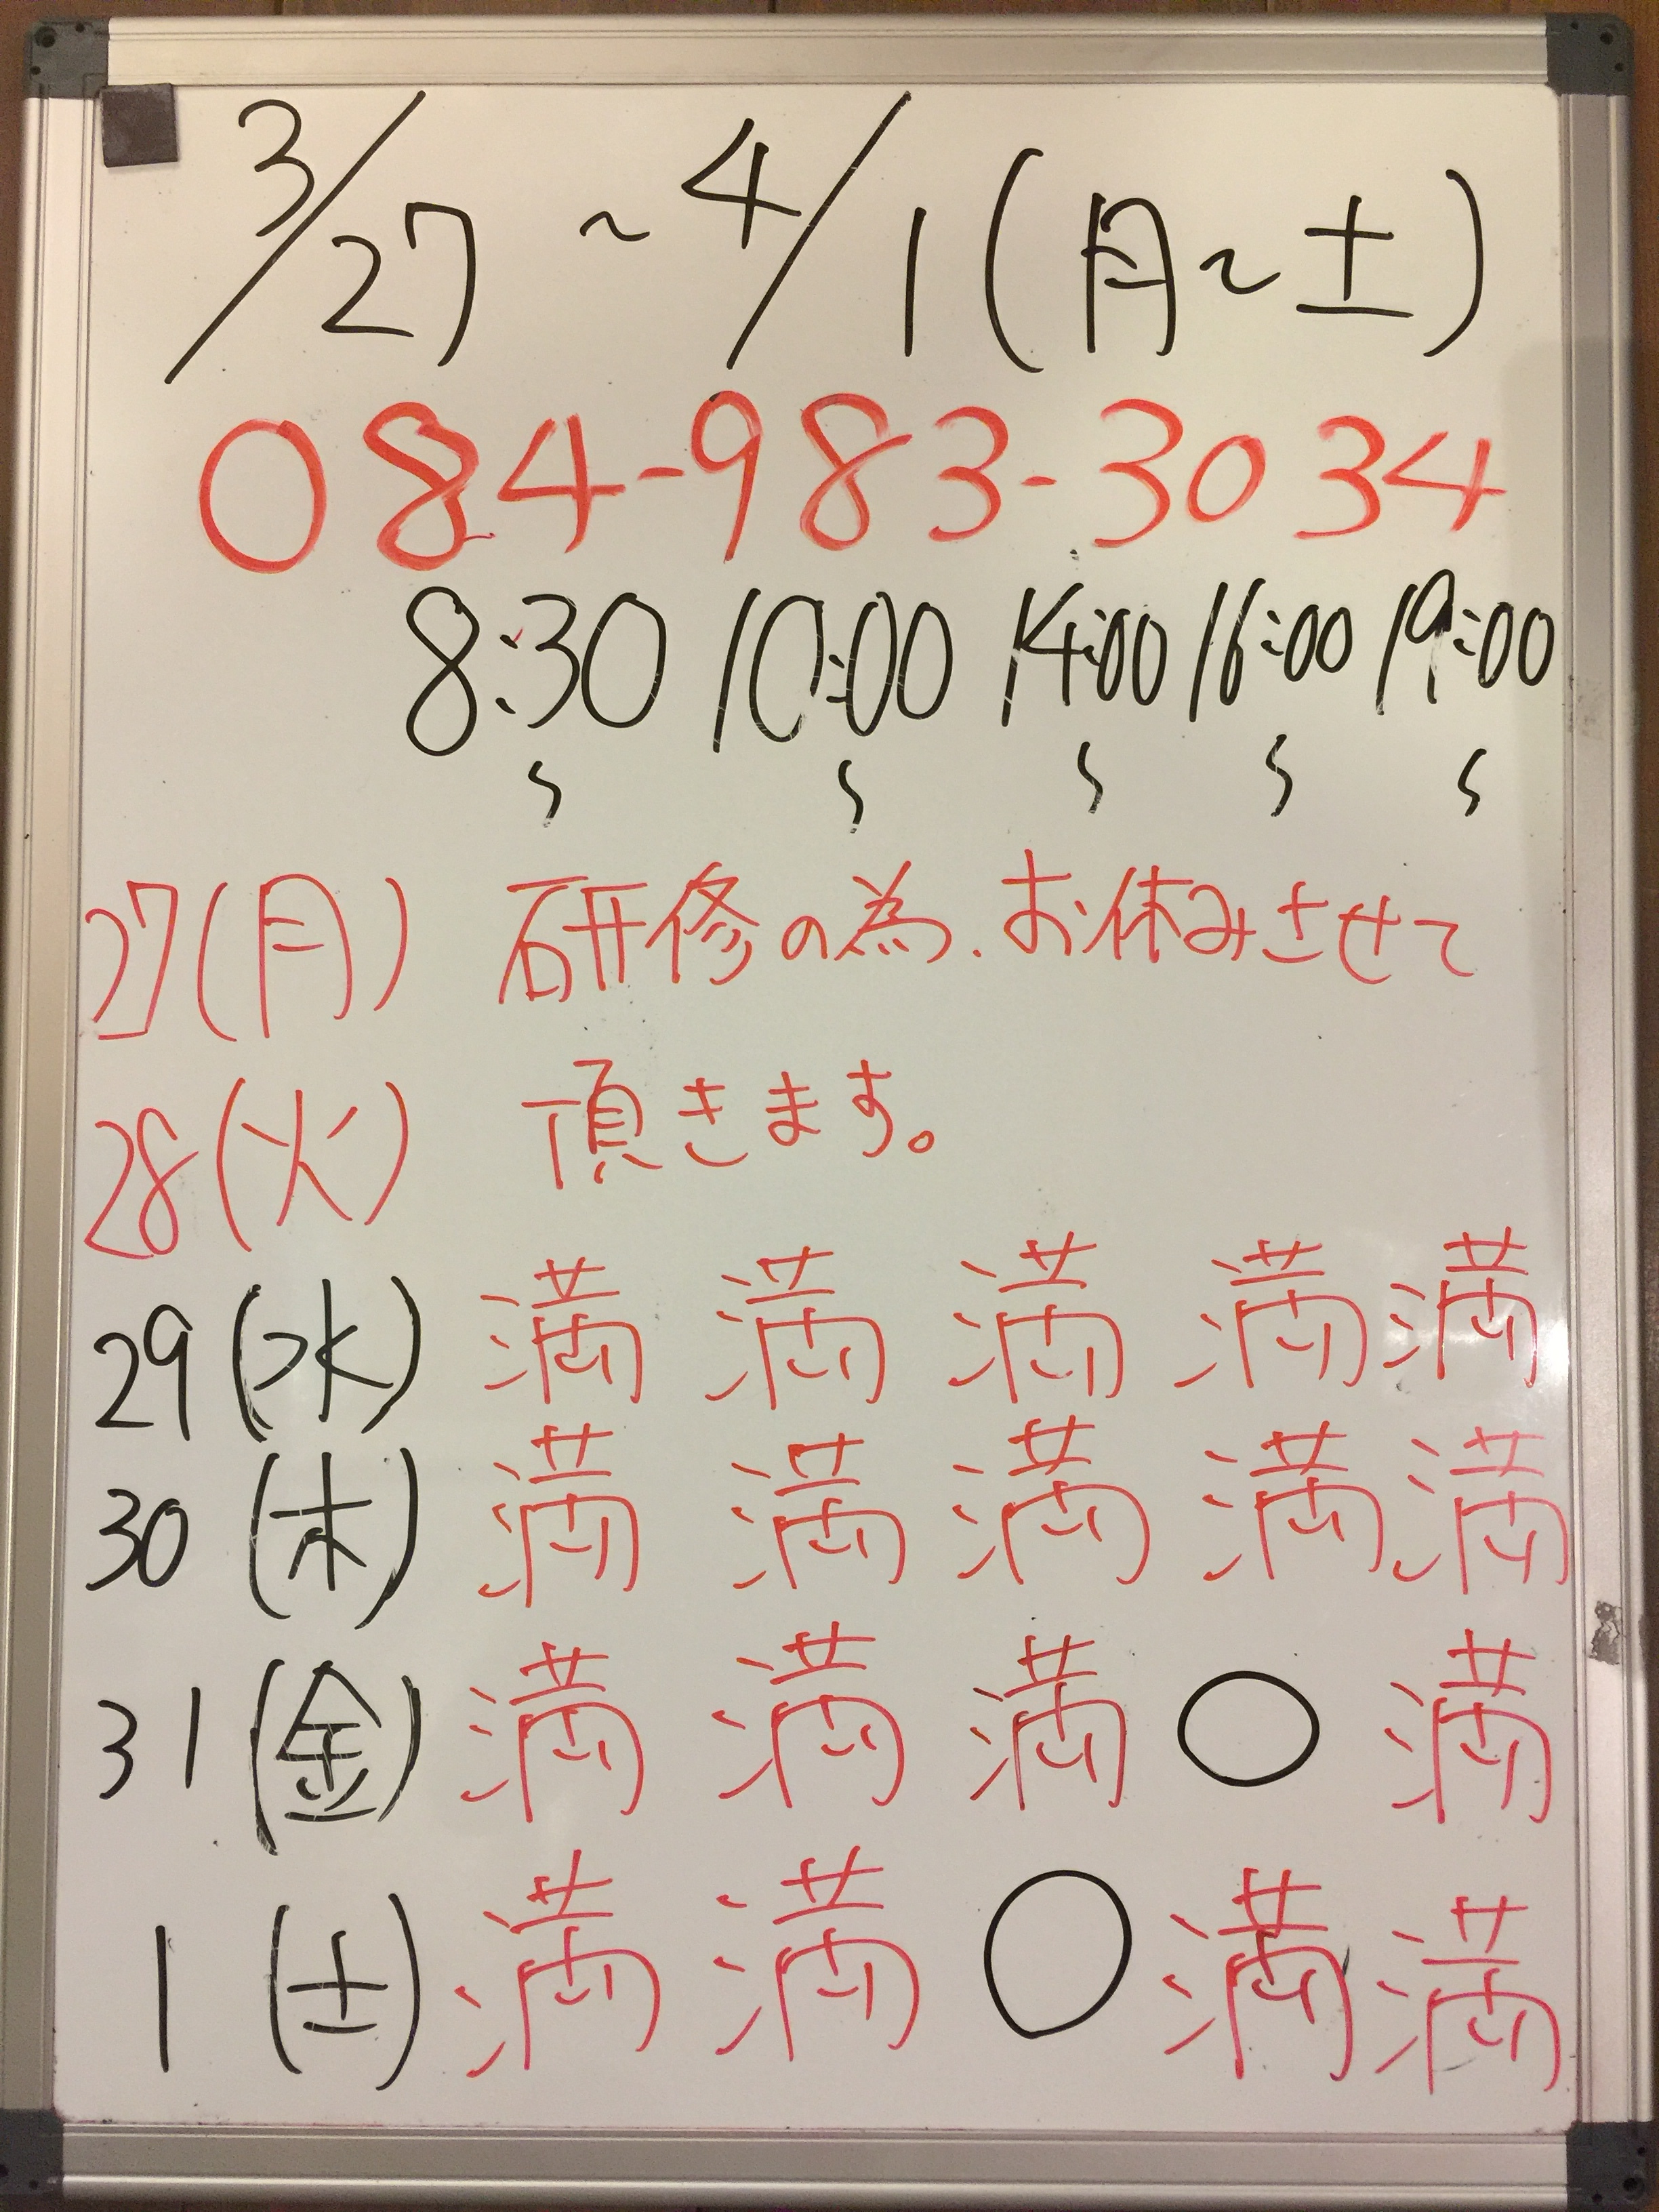 3/27 ~ 4/1(月~土)
084-983-3034
8:30 10:00 14:00 16:00 19:00
~ ~ ~ ~ ~
27(月) 研修の為、お休みさせて
28(火) 頂きます。
29(水) 満 満 満 満 満
30(木) 満 満 満 満 満
31(金) 満 満 満 ○ 満
1(土) 満 満 ○ 満 満